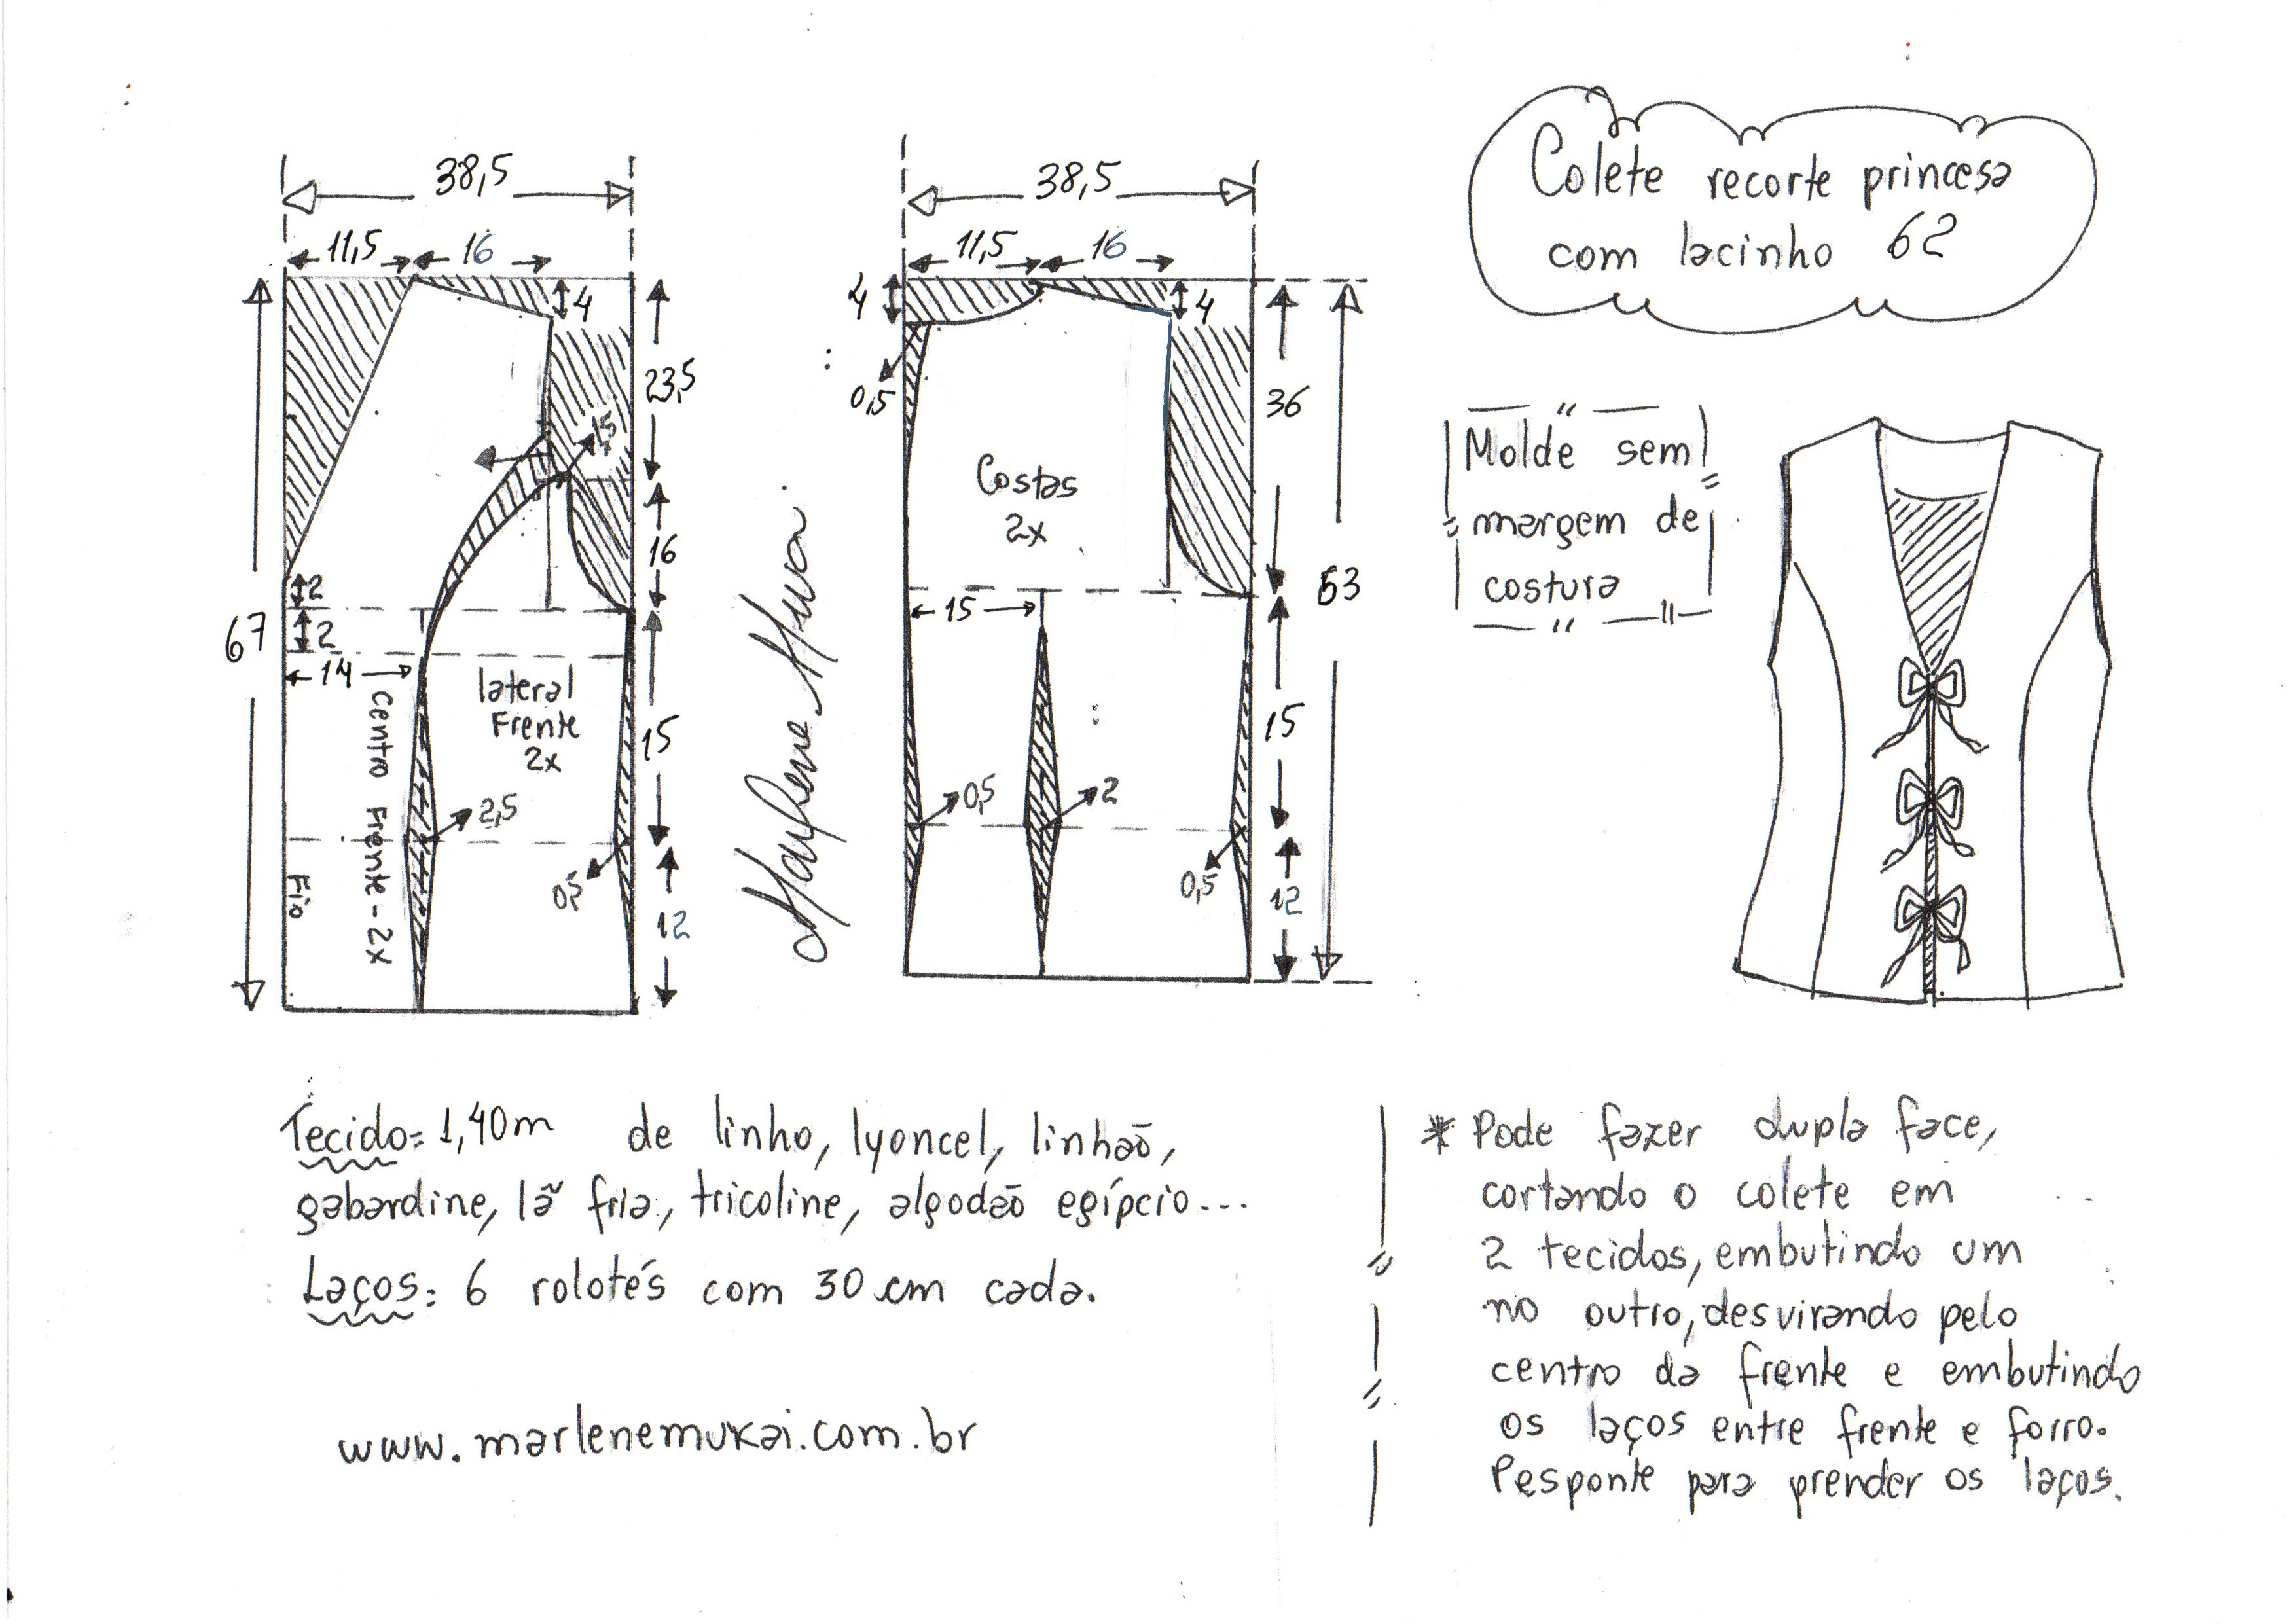 38,5
11,5
16
4
23,5
1,5
16
2
2
67
14
lateral
Frente
2x
Centro Frente - 2x
15
2,5
0,5
Fio
12
Marlene Mukai
38,5
11,5
16
4
4
0,5
36
Costas
2x
63
15
15
0,5
2
0,5
12
Colete recorte princesa
com lacinho 62
Molde sem
margem de
costura
Tecido= 1,40m de linho, lyoncel, linhão,
gabardine, lã fria, tricoline, algodão egípcio...
Laços: 6 rolotés com 30 cm cada.
www.marlenemukai.com.br
* Pode fazer dupla face,
cortando o colete em
2 tecidos, embutindo um
no outro, desvirando pelo
centro da frente e embutindo
os laços entre frente e forro.
Pesponte para prender os laços.